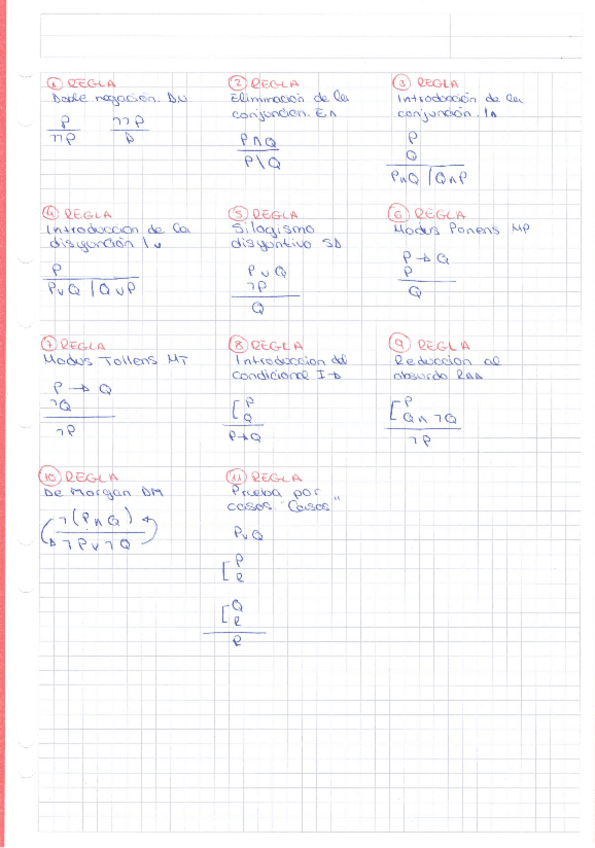 ① REGLA
Doble negación. DN
P
¬¬P
¬¬P
P
② REGLA
Eliminación de la
conjunción. E∧
P∧Q
P\Q
③ REGLA
Introducción de la
conjunción. I∧
P
Q
P∧Q / Q∧P
④ REGLA
Introducción de la
disyunción I∨
P
P∨Q / Q∨P
⑤ REGLA
Silogismo
disyuntivo SD
P∨Q
¬P
Q
⑥ REGLA
Modus Ponens MP
P→Q
P
Q
⑦ REGLA
Modus Tollens MT
P → Q
¬Q
¬P
⑧ REGLA
Introduccion del
condicional I→
[P
Q
P→Q
⑨ REGLA
Reduccion al
absurdo RAA
[P
Q∧¬Q
¬P
⑩ REGLA
De Morgan DM
¬(P∧Q)
¬P∨¬Q
⑪ REGLA
Prueba por
casos "Casos"
P∨Q
[P
R
[Q
R
R